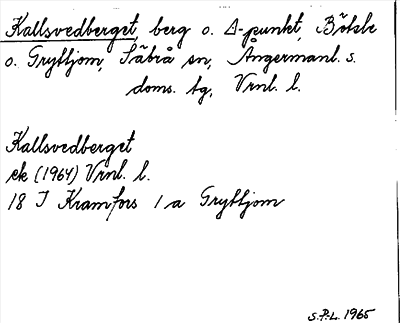 Kallsvedberget, berg o. Δ-punkt, Bölsle
o. Gryttjom, Säbrå sn, Ångermanl. s.
doms. tg, Vrnl. l.
Kallsvedberget
ek (1964) Vrnl. l.
18 I Kramfors 1 a Gryttjom
S.P.L. 1965